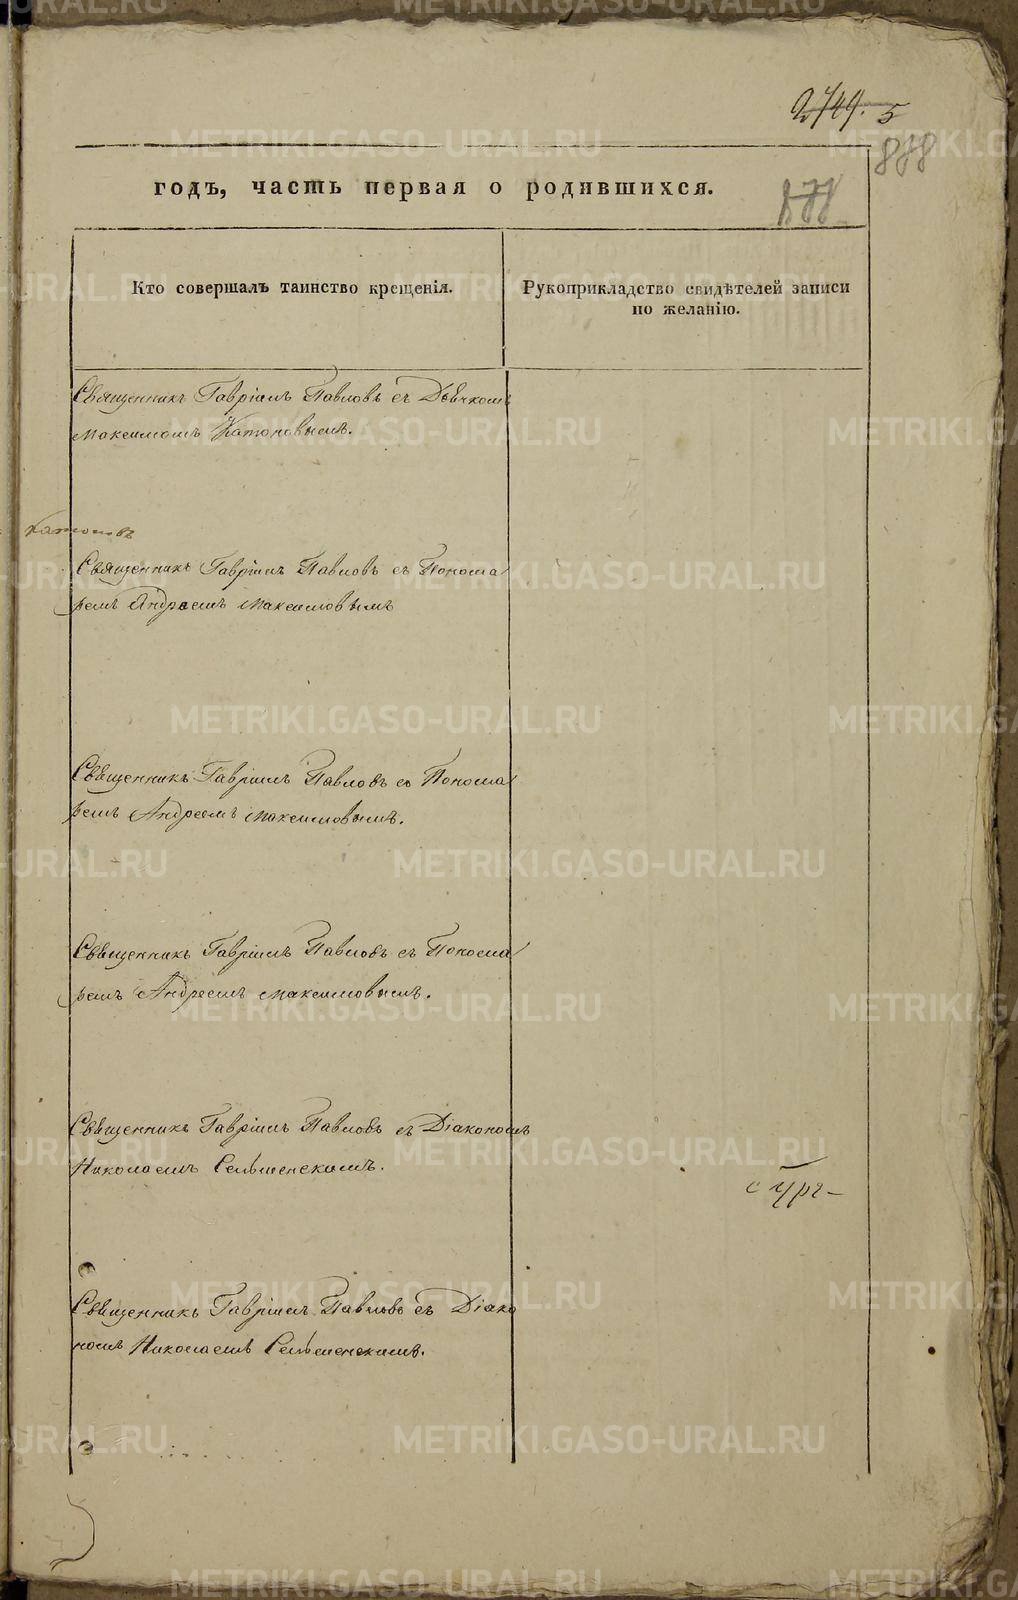 2749. 5
888
877
годъ, часть первая о родившихся.
Кто совершалъ таинство крещенія.
Рукоприкладство свидѣтелей записи
по желанію.
Священникъ Гавріилъ Павловъ съ Дьячкомъ
Максимомъ Катоновымъ.
Катоновъ
Священникъ Гавріилъ Павловъ съ Понома
ремъ Андреемъ Максимовымъ
Священникъ Гавріилъ Павловъ съ Понома
ремъ Андреемъ Максимовымъ.
Священникъ Гавріилъ Павловъ съ Понома
ремъ Андреемъ Максимовымъ.
Священникъ Гавріилъ Павловъ съ Діакономъ
Николаемъ Сельменскимъ.
Священникъ Гавріилъ Павловъ съ Діако
номъ Николаемъ Сельменскимъ.
METRIKI.GASO-URAL.RU